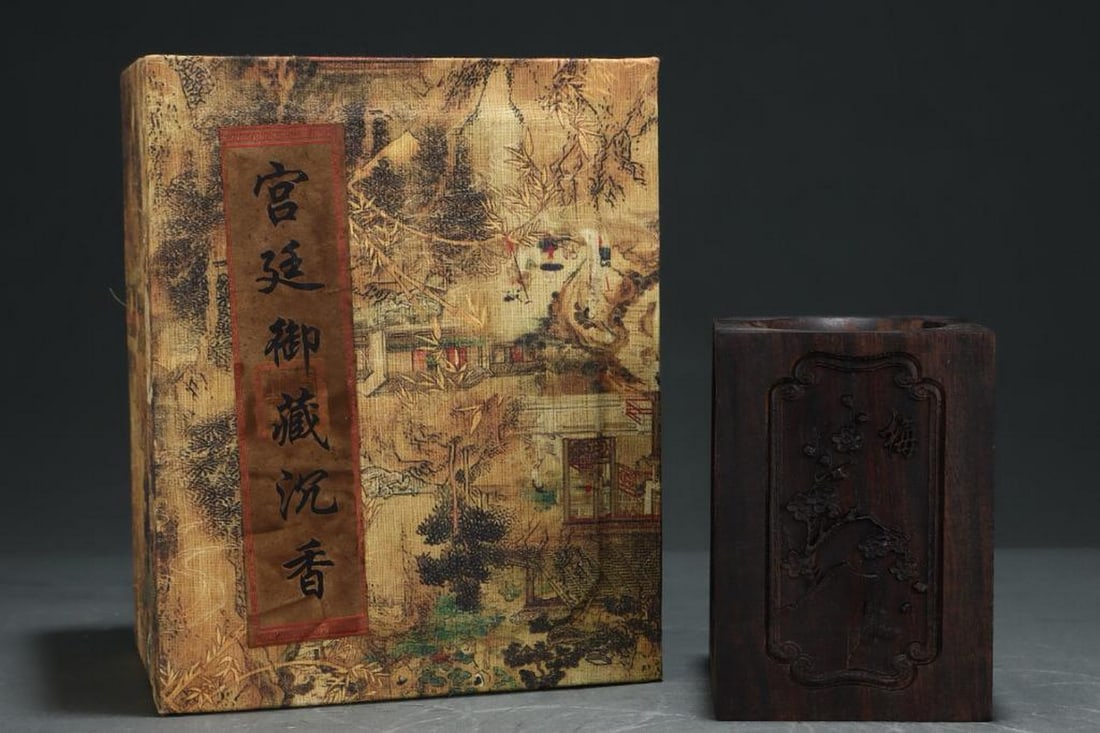 宫廷御藏沉香
梅